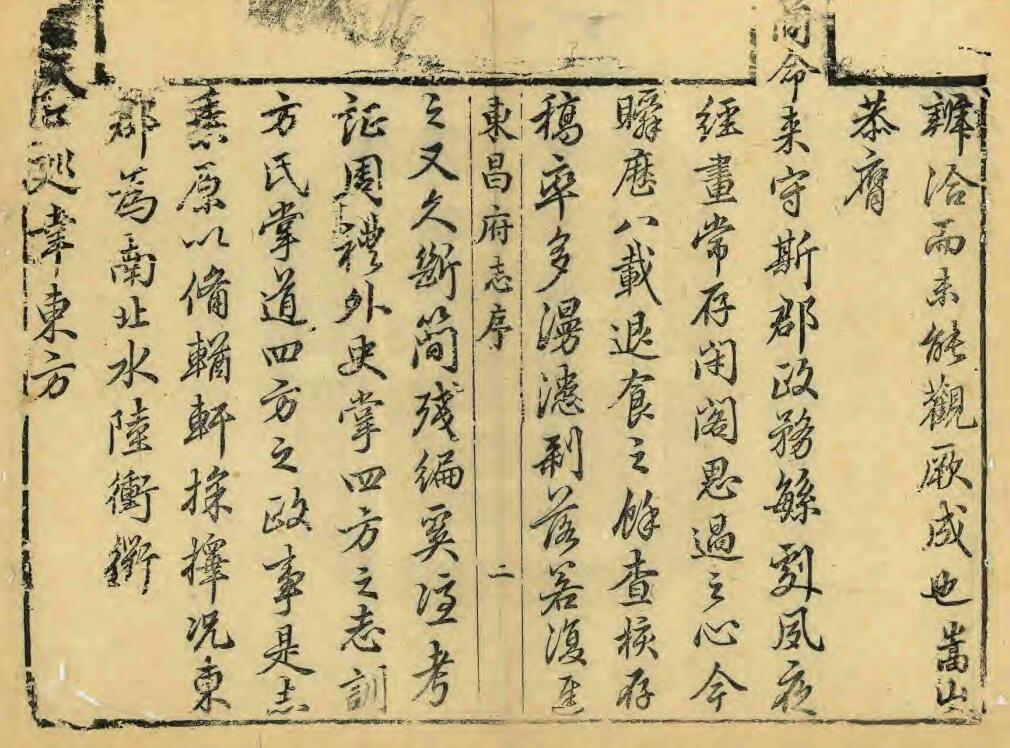 辦洽而未能觀厥成也嵩山
恭膺
簡命來守斯郡政務繁劇夙夜
經畫常存閉閣思過之心今
瞬歷八載退食之餘查核存
稿率多漫漶剥落若復遲
東昌府志序 二
之又久斷簡殘編奚憑考
証周禮外史掌四方之志訓
方氏掌道四方之政事是志
乘原以備輶軒採擇况東
郡為南北水陸衝衢
巡幸東方